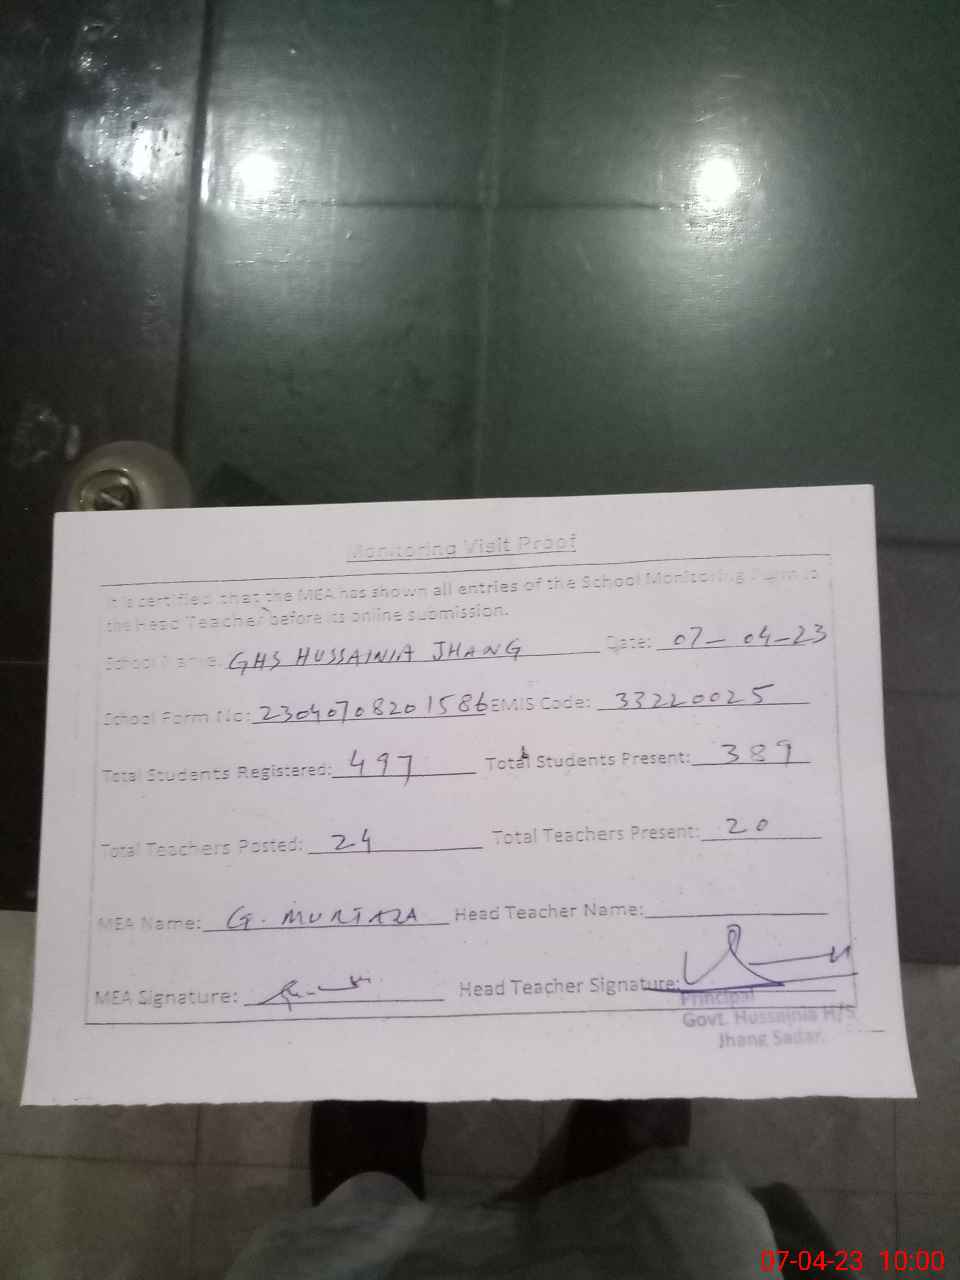 Monitoring Visit Proof
It is certified that the MEA has shown all entries of the School Monitoring Form to
the Head Teacher before its online submission.
School Name: GHS HUSSAINIA JHANG Date: 07-04-23
School Form No: 23040708201586 EMIS Code: 33220025
Total Students Registered: 497 Total Students Present: 389
Total Teachers Posted: 24 Total Teachers Present: 20
MEA Name: G. MURTAZA Head Teacher Name:
MEA Signature: Head Teacher Signature:
Principal
Govt. Hussainia H/S
Jhang Sadar.
07-04-23 10:00